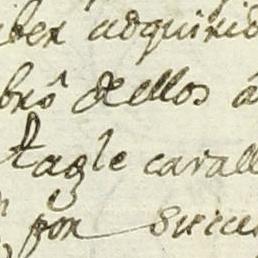 iber adquirid
brô dellos a
Tagle cavall
por Succes